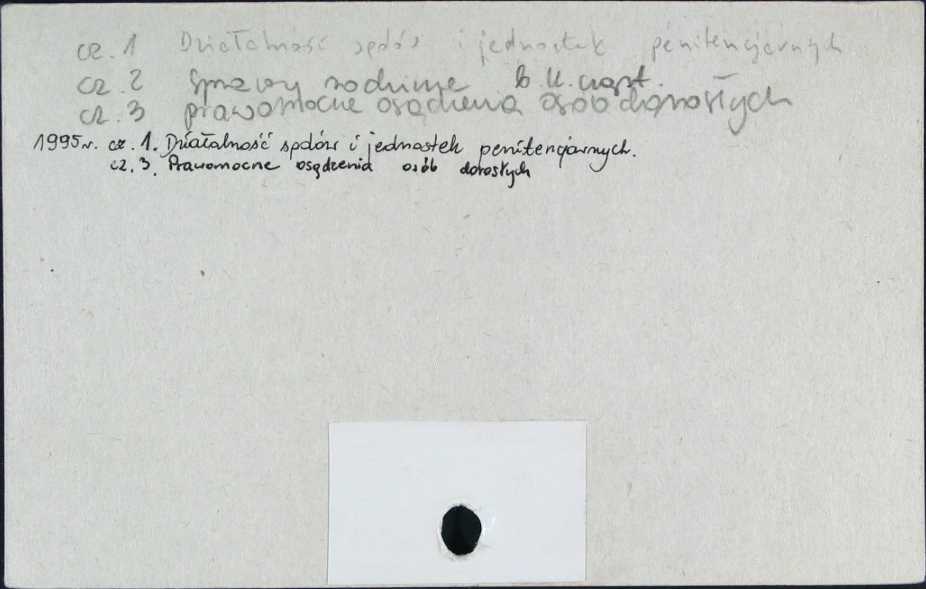 cz. 1 Działalność sądów i jednostek penitencjarnych
cz. 2 Sprawy rodzinne b. u. nast.
cz. 3 prawomocne osądzenia osób dorosłych
1995r. cz. 1. Działalność sądów i jednostek penitencjarnych.
cz. 3. Prawomocne osądzenia osób dorosłych